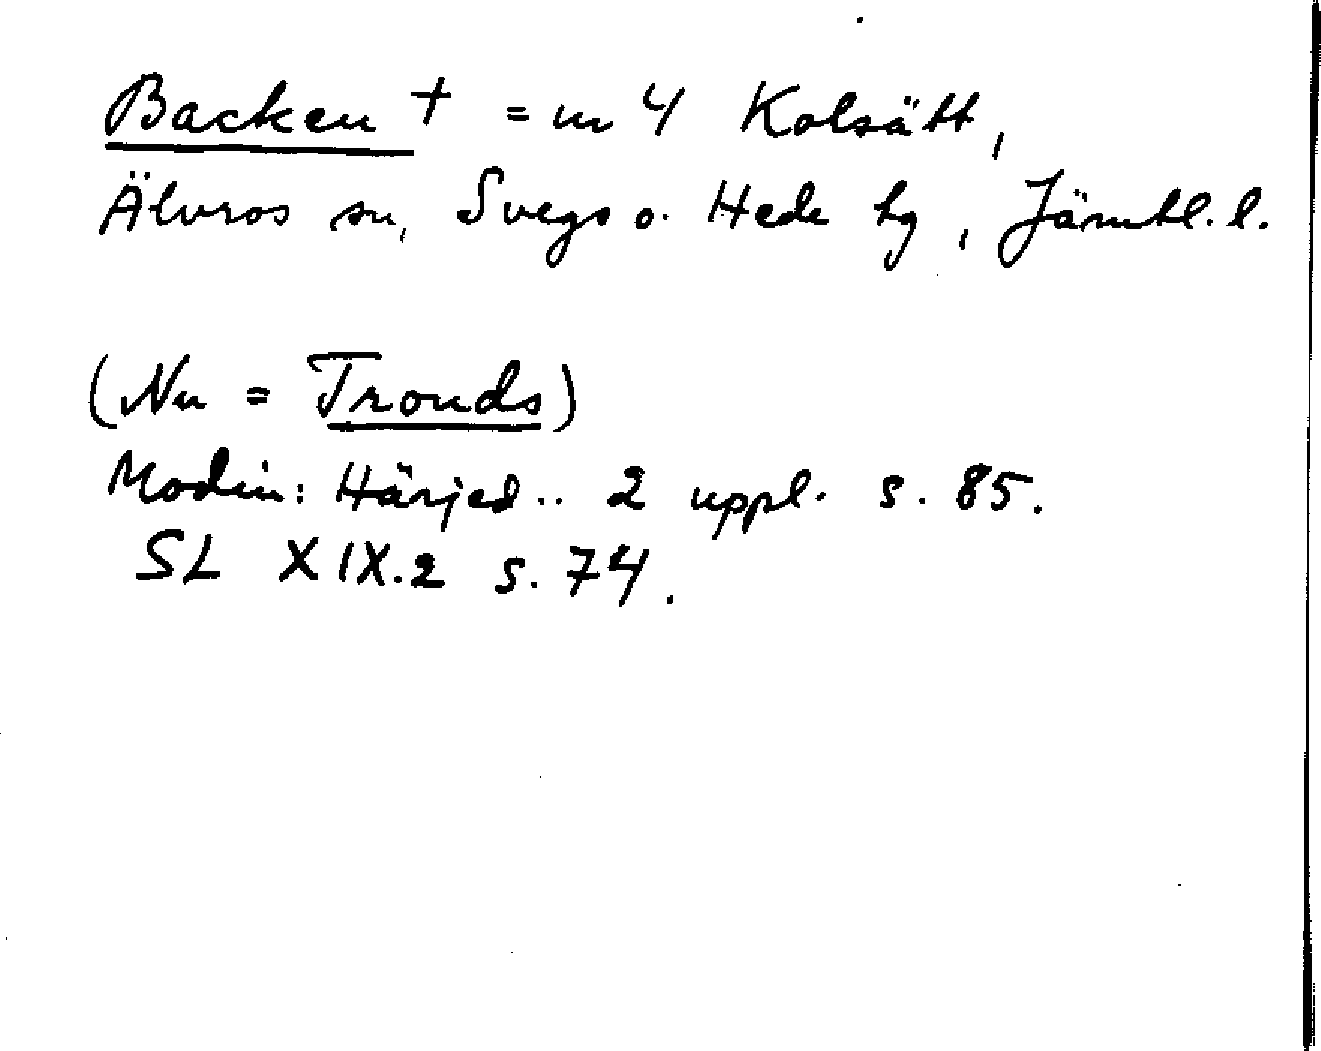 Backen † = nr 4 Kolsätt,
Älvros sn, Svegs o. Hede tg, Jämtl. l.
(Nu = Tronds)
Modin: Härjed.. 2 uppl. s. 85.
SL XIX.2 s. 74.